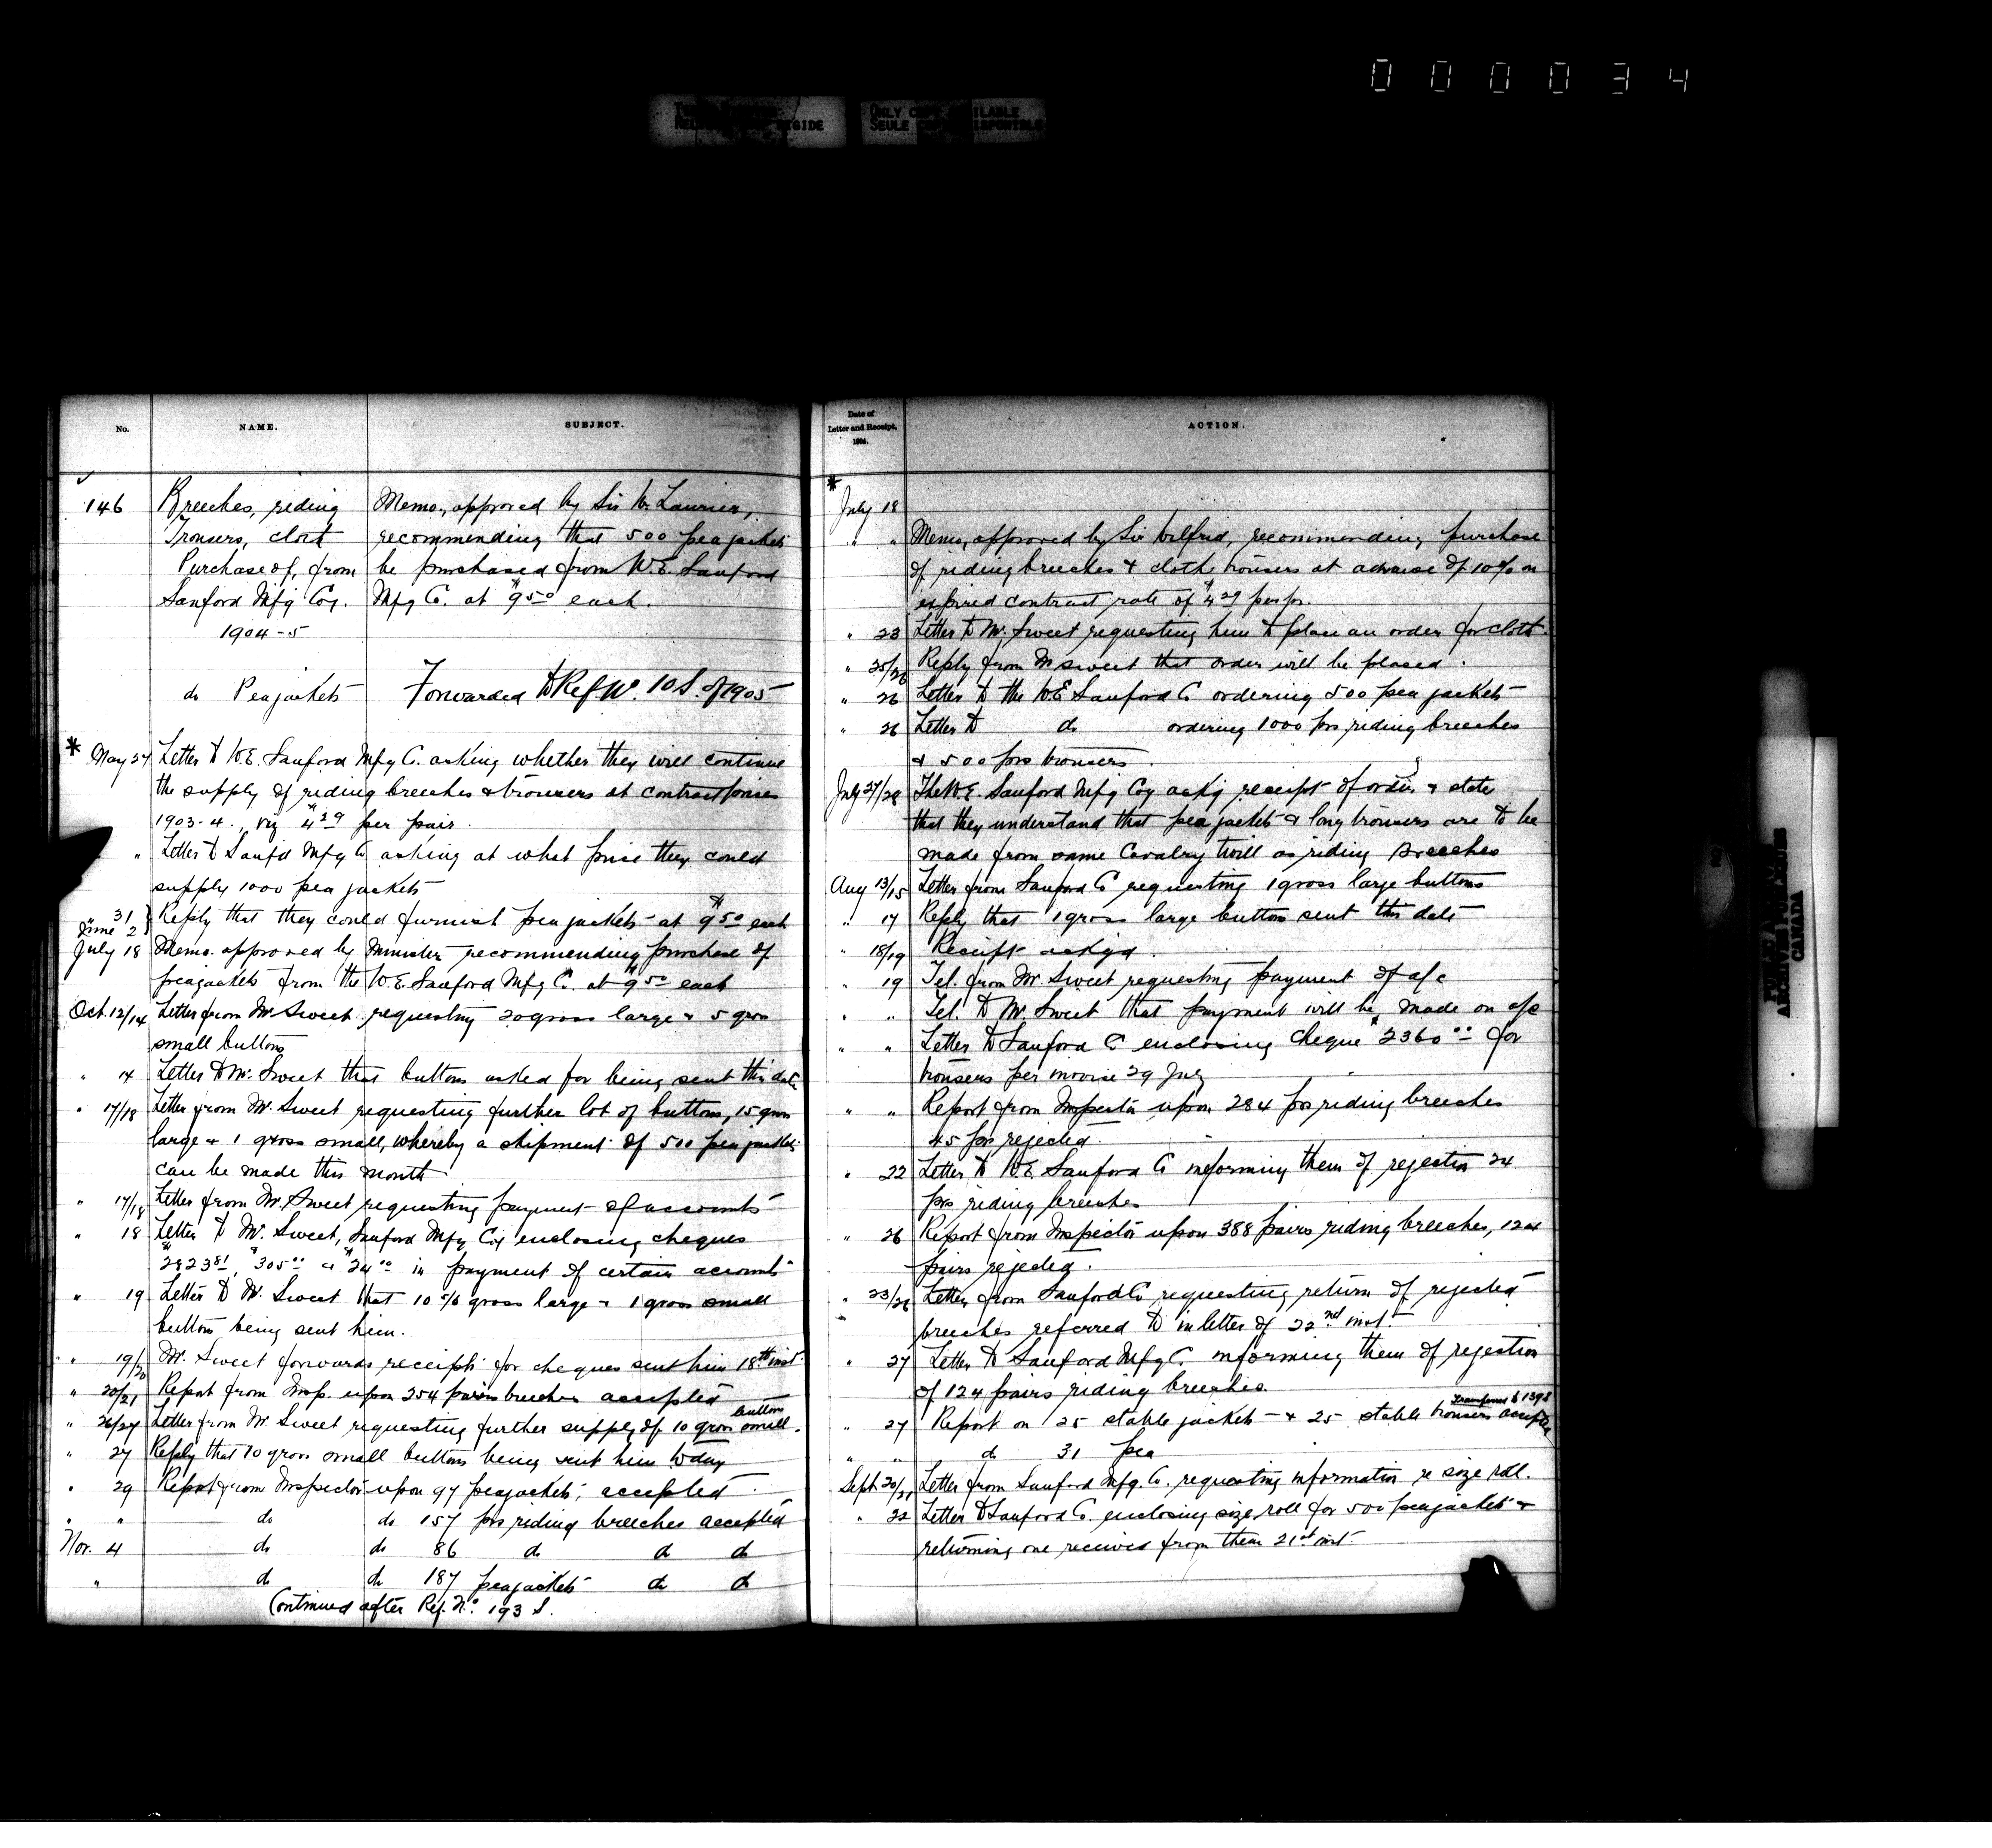 000034
ONLY COPY AVAILABLE
SEULE
No.
NAME.
SUBJECT.
146
Breeches, riding
Trousers, cloth
Purchase of, from
Sanford Mfg Coy.
1904-5
do Peajackets
Memo, approved by Sir W. Laurier,
recommending that 500 peajackets
be purchased from W.E. Sanford
Mfg Co. at $9.50 each.
Forwarded to Ref. No. 10 S. of 1905
* May 27 Letter to W.E. Sanford Mfg Co. asking whether they will continue
the supply of riding breeches & trousers at contract prices
1903-4, viz $4.29 per pair.
" Letter to Sanfd Mfg Co asking at what price they could
supply 1000 pea jackets
" 31 June 2 } Reply that they could furnish peajackets at $9.50 each
July 18 Memo. approved by Minister recommending purchase of
peajackets from the W.E. Sanford Mfg Co. at $9.50 each
Oct. 12/14 Letter from Mr. Sweet requesting 20 gross large & 5 gross
small buttons
" 14 Letter to Mr. Sweet that buttons asked for being sent this date
" 17/18 Letter from Mr. Sweet requesting further lot of buttons, 15 gross
large & 1 gross small, whereby a shipment of 500 peajackets
can be made this month
" 17/18 Letter from Mr. Sweet requesting payment of accounts
" 18 Letter to Mr. Sweet, Sanford Mfg Coy enclosing cheques
$2823.81, $305.00 & $24.00 in payment of certain accounts
" 19 Letter to Mr. Sweet that 10 5/6 gross large & 1 gross small
buttons being sent him.
" 19/20 Mr. Sweet forwards receipts for cheques sent him 18th inst.
" 20/21 Report from Insp. upon 254 pairs breeches accepted
" 26/27 Letter from Mr. Sweet requesting further supply of 10 gross small buttons.
" 27 Reply that 10 gross small buttons being sent him today
" 29 Report from Inspector upon 97 peajackets, accepted
" " do do 157 prs riding breeches accepted
Nov. 4 do do 86 do do do
" do do 187 peajackets do do
Continued after Ref. No. 193 S.
Date of
Letter and Receipt,
1904.
ACTION.
*
July 18
" " Memo, approved by Sir Wilfrid, recommending purchase
of riding breeches & cloth trousers at advance of 10% on
expired contract rate of $4.29 per pr.
" 23 Letter to Mr. Sweet requesting him to place an order for cloth.
" 25/26 Reply from Mr Sweet that order will be placed.
" 26 Letter to the W.E. Sanford Co ordering 500 pea jackets
" 26 Letter to do ordering 1000 prs riding breeches
& 500 prs trousers.
July 27/28 The W.E. Sanford Mfg Coy ackg receipt of order & state
that they understand that pea jackets & long trousers are to be
made from same Cavalry twill as riding Breeches
Aug 13/15 Letter from Sanford Co requesting 1 gross large buttons
" 17 Reply that 1 gross large buttons sent this date
" 18/19 Receipt ackgd.
" 19 Tel. from Mr Sweet requesting payment of a/c
" " Tel. to Mr. Sweet that payment will be made on a/c
" " Letter to Sanford Co enclosing cheque $2360.00 for
trousers per invoice 29 July
" " Report from Inspector upon 284 prs riding breeches
45 prs rejected.
" 22 Letter to W.E. Sanford Co informing them of rejection 24
prs riding breeches
" 26 Report from Inspector upon 388 pairs riding breeches, 124
pairs rejected.
" 23/26 Letter from Sanford Co requesting return of rejected
breeches referred to in letter of 22nd inst.
" 27 Letter to Sanford Mfg Co. informing them of rejection
of 124 pairs riding breeches.
Transferred to 1398
" 27 Report on 25 stable jackets & 25 stable trousers accepted
" " do 31 pea
Sept 20/21 Letter from Sanford Mfg. Co. requesting information re size roll.
" 22 Letter to Sanford Co. enclosing size roll for 500 peajackets &
returning one received from them 21st inst.
CANADA